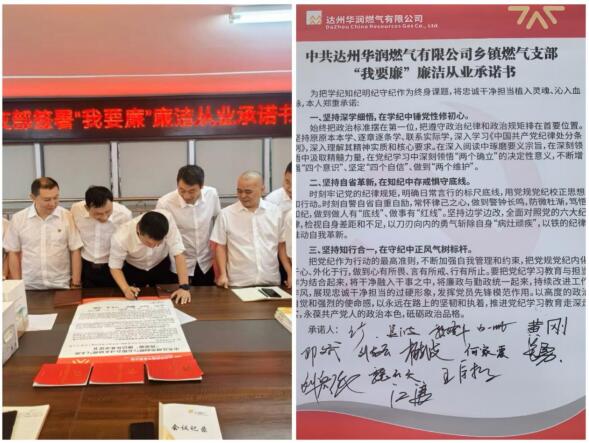 支部签署“我要廉”廉洁从业承诺书
会议记录
达州华润燃气有限公司
DaZhou China Resources Gas Co., Ltd.
中共达州华润燃气有限公司乡镇燃气支部
“我要廉”廉洁从业承诺书
为把学纪知纪明纪守纪作为终身课题，将忠诚干净担当植入灵魂、沁入血
脉，本人郑重承诺：
一、坚持深学细悟，在学纪中锤党性修初心。
始终把政治标准摆在第一位，把遵守政治纪律和政治规矩排在首要位置。
坚持原原本本学、逐章逐条学、联系实际学，深入学习《中国共产党纪律处分条
例》，深入理解其精神实质和核心要求。在深入阅读中琢磨要义宗旨，在深刻领
悟中汲取精髓力量，在党纪学习中深刻领悟“两个确立”的决定性意义，不断增
强“四个意识”、坚定“四个自信”、做到“两个维护”。
二、坚持自省革新，在知纪中存戒惧守底线。
时刻牢记党的纪律规矩，明确日常言行的标尺底线，用党规党纪校正思想
和行动。时刻自警自省自重自励，常怀律己之心，做到警钟长鸣，防微杜渐，笃悟
知纪，做到做人有“底线”、做事有“红线”。坚持边学边改，全面对照党的六大纪
律，检视自身差距和不足，以刀刃向内的勇气斩除自身“病灶顽疾”，以铁的纪律
推动自我革新。
三、坚持知行合一，在守纪中正风气树标杆。
把党纪作为行动的最高准则，不断加强自我管理和约束，把党规党纪内化
于心、外化于行，做到心有所畏、言有所戒、行有所止。要把党纪学习教育与担当
作为结合起来，将干净融入干事之中，将廉政与勤政统一起来，持续改进工作
作风，展现忠诚干净担当的过硬形象，发挥党员先锋模范作用，以高度的政治
自觉和强烈的使命感，以永远在路上的坚韧和执着，推进党纪学习教育走深走
实，永葆共产党人的政治本色，砥砺政治品格。
承诺人：
黄刚